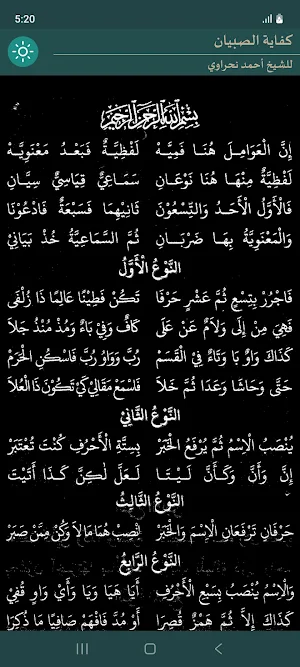 5:20
كفاية الصبيان
للشيخ أحمد نحراوي
بِسْمِ اللهِ الرَّحْمٰنِ الرَّحِيْمِ
إِنَّ الْعَوَامِلَ هُنَا قِمِيَّهْ لَفْظِيَّةٌ فَبَعْدُ مَعْنَوِيَّهْ
لَفْظِيَّةٌ مِنْهَا هُنَا نَوْعَانِ سَمَاعِيٌّ قِيَاسِيٌّ سِيَّانِ
فَالْأَوَّلُ الْأَحَدُ وَالتِّسْعُوْنَ ثَانِيْهِمَا فَسَبْعَةٌ فَادْعُوْنَا
وَالْمَعْنَوِيَّةُ بِهَا ضَرْبَانِ ثُمَّ السَّمَاعِيَّةُ خُذْ بَيَانِيْ
النَّوْعُ الْأَوَّلُ
فَاجْرُرْ بِتِسْعٍ ثُمَّ عَشْرٍ حَرْفَا تَكُنْ فَطِيْنًا عَالِمًا ذَا زُلْفَى
فَهِيَ مِنْ إِلَى وَلَامٌ عَنْ عَلَى كَافٌ وَفِيْ بَاءٌ وَمُذْ مُنْذُ جَلَا
كَذَاكَ وَاوٌ يَا وَتَاءٌ فِي الْقَسَمْ رُبَّ وَوَاوُ رُبَّ فَاسْكُنِ الْحَرَمْ
حَتَّى وَحَاشَا وَعَدَا ثُمَّ خَلَا فَاسْمَعْ مَقَالِيْ كَيْ تَكُوْنَ ذَا الْعُلَا
النَّوْعُ الثَّانِيْ
يُنْصَبُ الْاِسْمُ ثُمَّ يُرْفَعُ الْخَبَرْ بِسِتَّةِ الْأَحْرُفِ كُنْتَ تُعْتَبَرْ
إِنَّ وَأَنَّ وَكَأَنَّ لَيْتَا لَعَلَّ لٰكِنَّ كَذَا أَتَيْتَ
النَّوْعُ الثَّالِثُ
حَرْفَانِ تَرْفَعَانِ الْاِسْمَ وَالْخَبَرْ اِنْصِبْ هُمَا مَا لَا وَكُنْ مِمَّنْ صَبَرْ
النَّوْعُ الرَّابِعُ
وَالْاِسْمُ يُنْصَبُ بِسَبْعِ الْأَحْرُفِ أَيَا هَيَا وَيَا وَأَيْ وَاوٍ قُفِيْ
كَذَاكَ إِلَّا ثُمَّ هَمْزٌ قُصِرَا أَوْ مُدَّ فَافْهَمْ صَافِيًا مَا ذُكِرَا